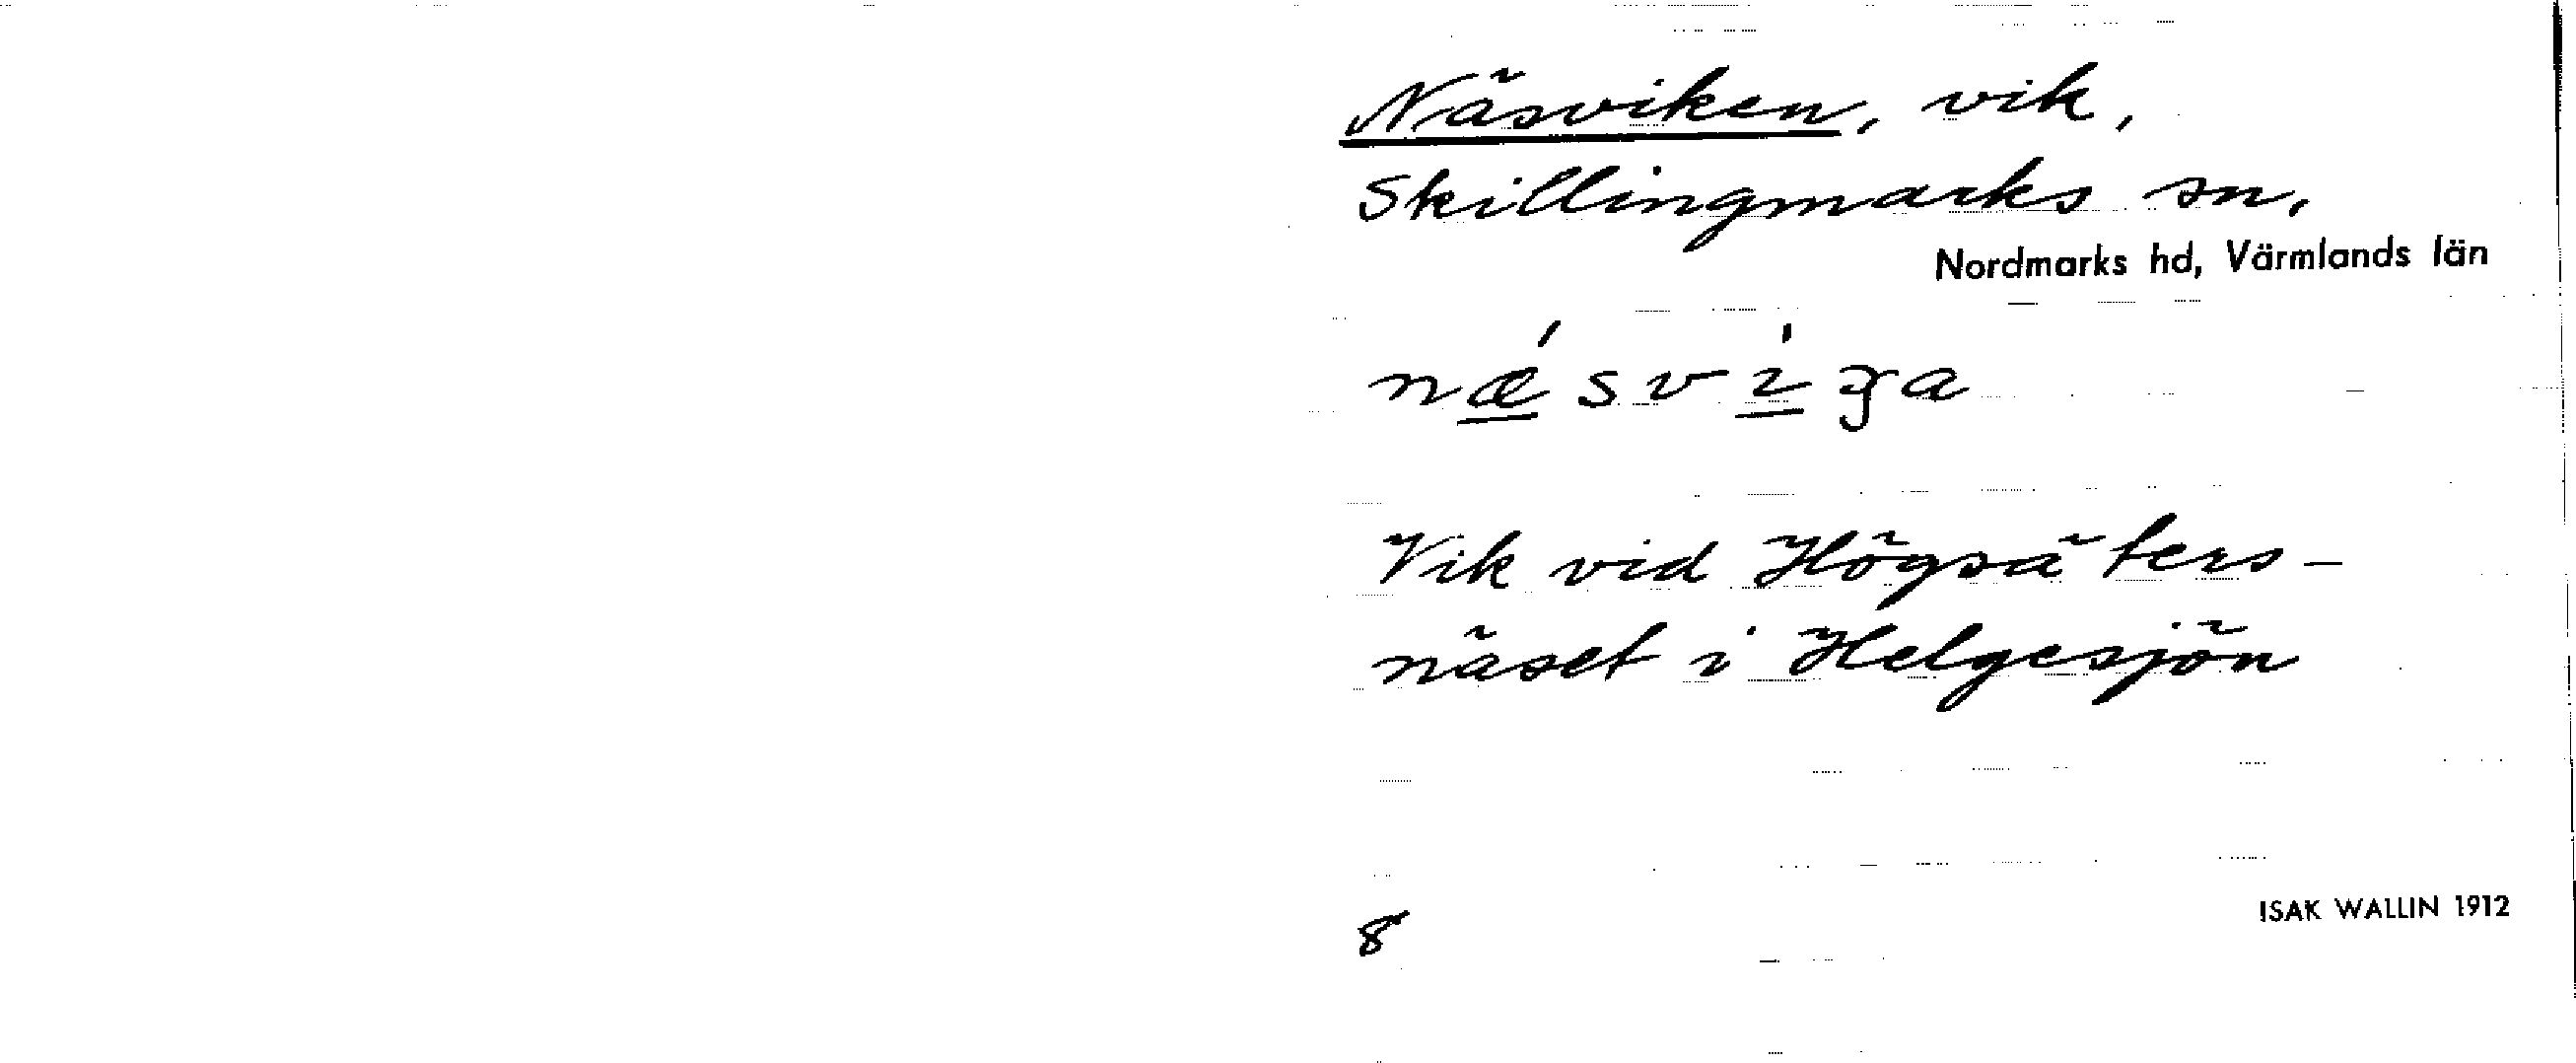 Näsviken, vik,
Skillingmarks sn,
Nordmarks hd, Värmlands län
næ´svi´ga
Vik vid Högsäters-
näset i Helgesjön
8
ISAK WALLIN 1912